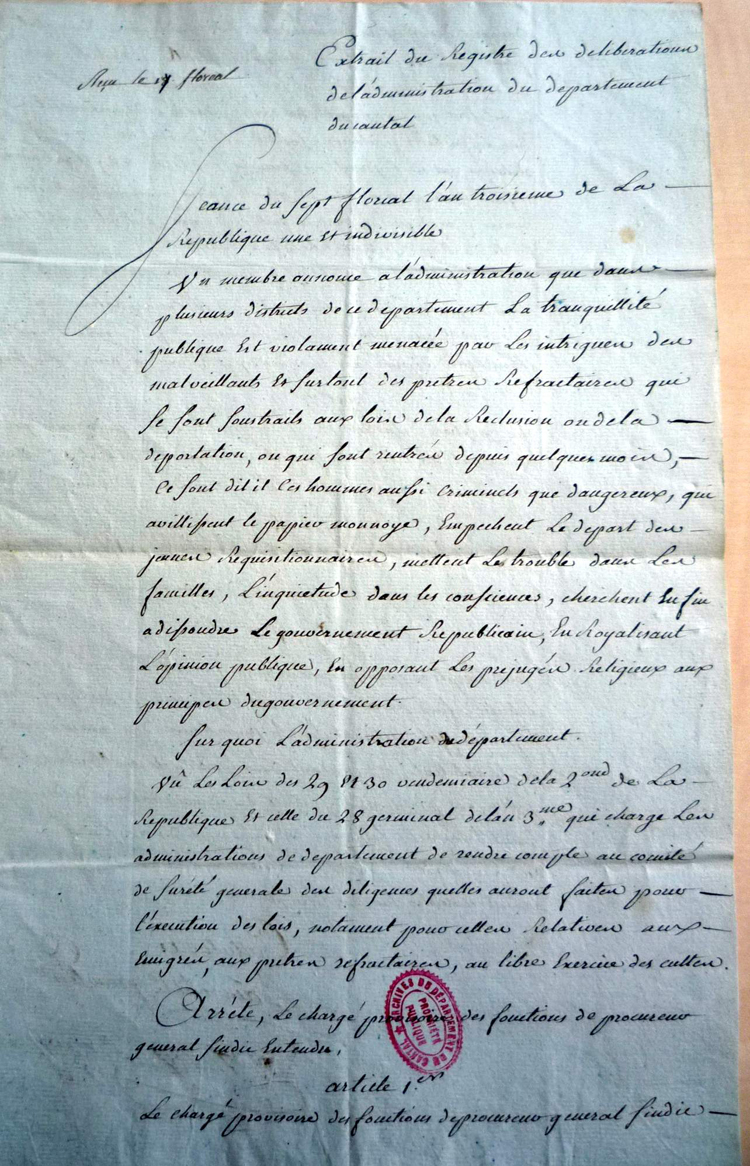 Extrait du Registre des deliberations
Reçu le 17 floreal
de l'administration du departement
du cantal
Seance du sept floreal l'an troisieme de La
Republique une Et indivisible
Un membre annonce a l'administration que dans
plusieurs districts de ce departement La tranquillité
publique Est violament menacée par Les intrigues des
malveillants Et surtout des pretres Refractaires qui
se sont soustraits aux loix de la Reclusion ou de la
deportation, ou qui sont rentrés depuis quelques mois,
Ce sont dit il Ces hommes aussi Criminels que dangereux, qui
avilissent le papier monnoye, Empechent Le depart des
jeunes Requisitionnaires, mettent Le trouble dans Les
familles, L'inquietude dans les consciences, cherchent Enfin
a dissoudre Le gouvernement Republicain, En Royalisant
L'opinion publique, En opposant Les prejugés Religieux aux
principes du gouvernement.
Sur quoi L'administration du departement.
Vû Les Loix des 29 Et 30 vendemiaire de la 2ond de La
Republique Et celle du 28 germinal de l'an 3.me qui charge Les
administrations de departement de rendre compte au comité
de sureté generale des diligences quelles auront faites pour
l'execution des lois, notament pour celles Relatives aux
Emigrés, aux pretres refractaires, au libre Exercice des cultes.
Arrête, Le chargé provisoire des fonctions de procureur
general sindic Entendu,
article 1.er
Le chargé provisoire des fonctions de procureur general sindic
ARCHIVES DU DÉPARTEMENT DU CANTAL
PROPRIÉTÉ PUBLIQUE